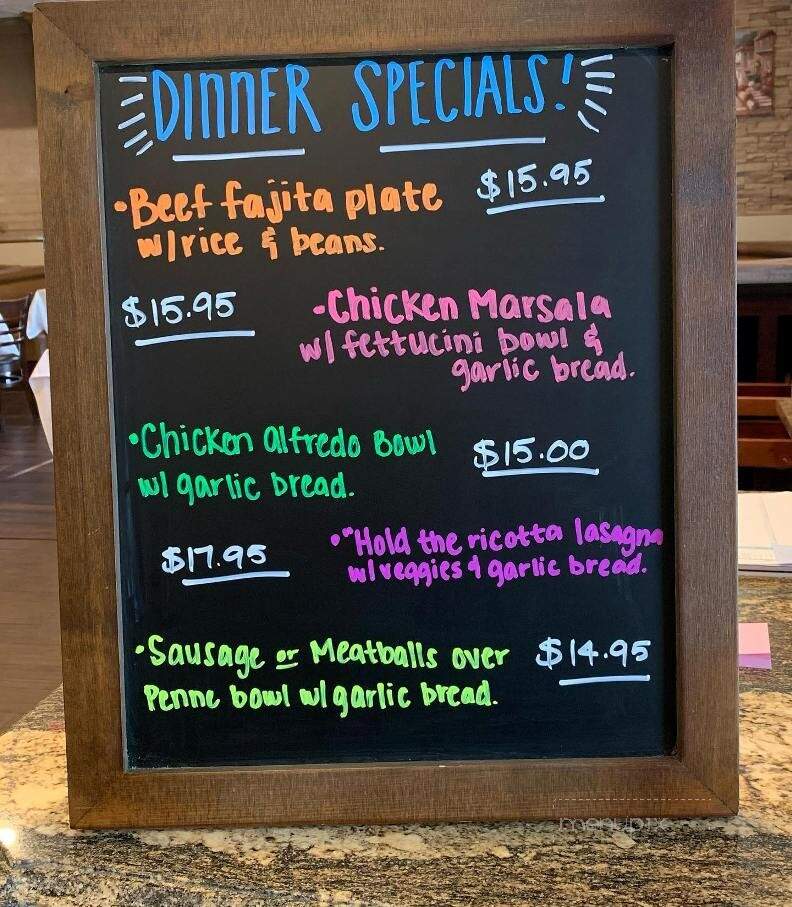 DINNER SPECIALS!
•Beef fajita plate $15.95
w/rice & beans.
$15.95 -Chicken Marsala
w/ fettucini bowl &
garlic bread.
•Chicken alfredo Bowl $15.00
w/ garlic bread.
$17.95 •"Hold the ricotta lasagna
w/veggies & garlic bread.
•Sausage or Meatballs over $14.95
Penne bowl w/garlic bread.
menupix